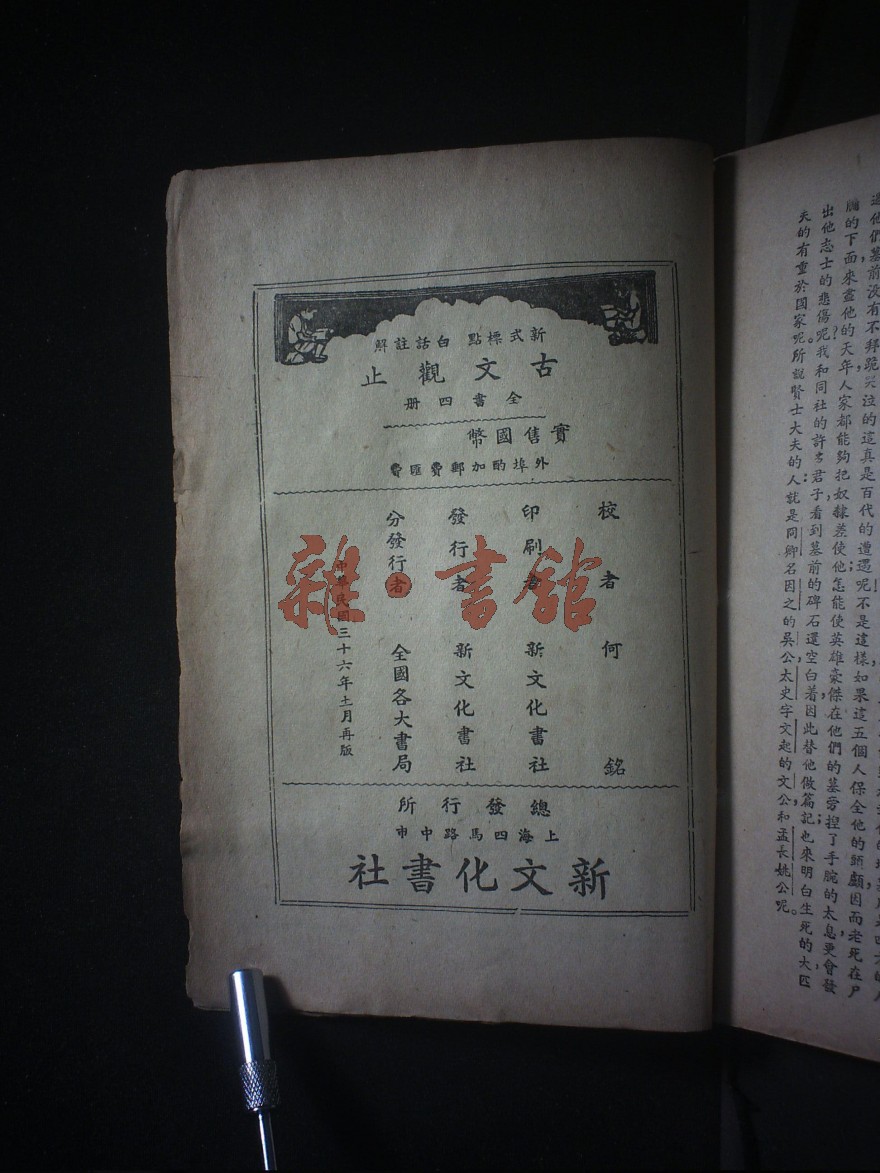 新式標點 白話註解
古文觀止
全書四册
實售國幣
外埠酌加郵費匯費
校者 何銘
印刷者 新文化書社
發行者 新文化書社
分發行者 全國各大書局
中華民國三十六年十一月再版
總發行所
上海四馬路中市
新文化書社
雜·書館
過他們墓前沒有不拜跪哭泣的這真是百代的遭遇呢不是這樣如果這五個人保全他的頭顱因而老死在戶
牖的下面來盡他的天年人家都能夠把奴隸差使他怎能使英雄豪傑在他們的墓旁捏了手腕的太息更會發
出他志士的悲傷呢我和同社的許多君子看到墓前的碑石還空白着因此替他做篇記也來明白生死的大匹
夫的有重於國家呢所說賢士大夫的人就是同卿名因之的吳公太史字文起的文公和孟長姚公呢。